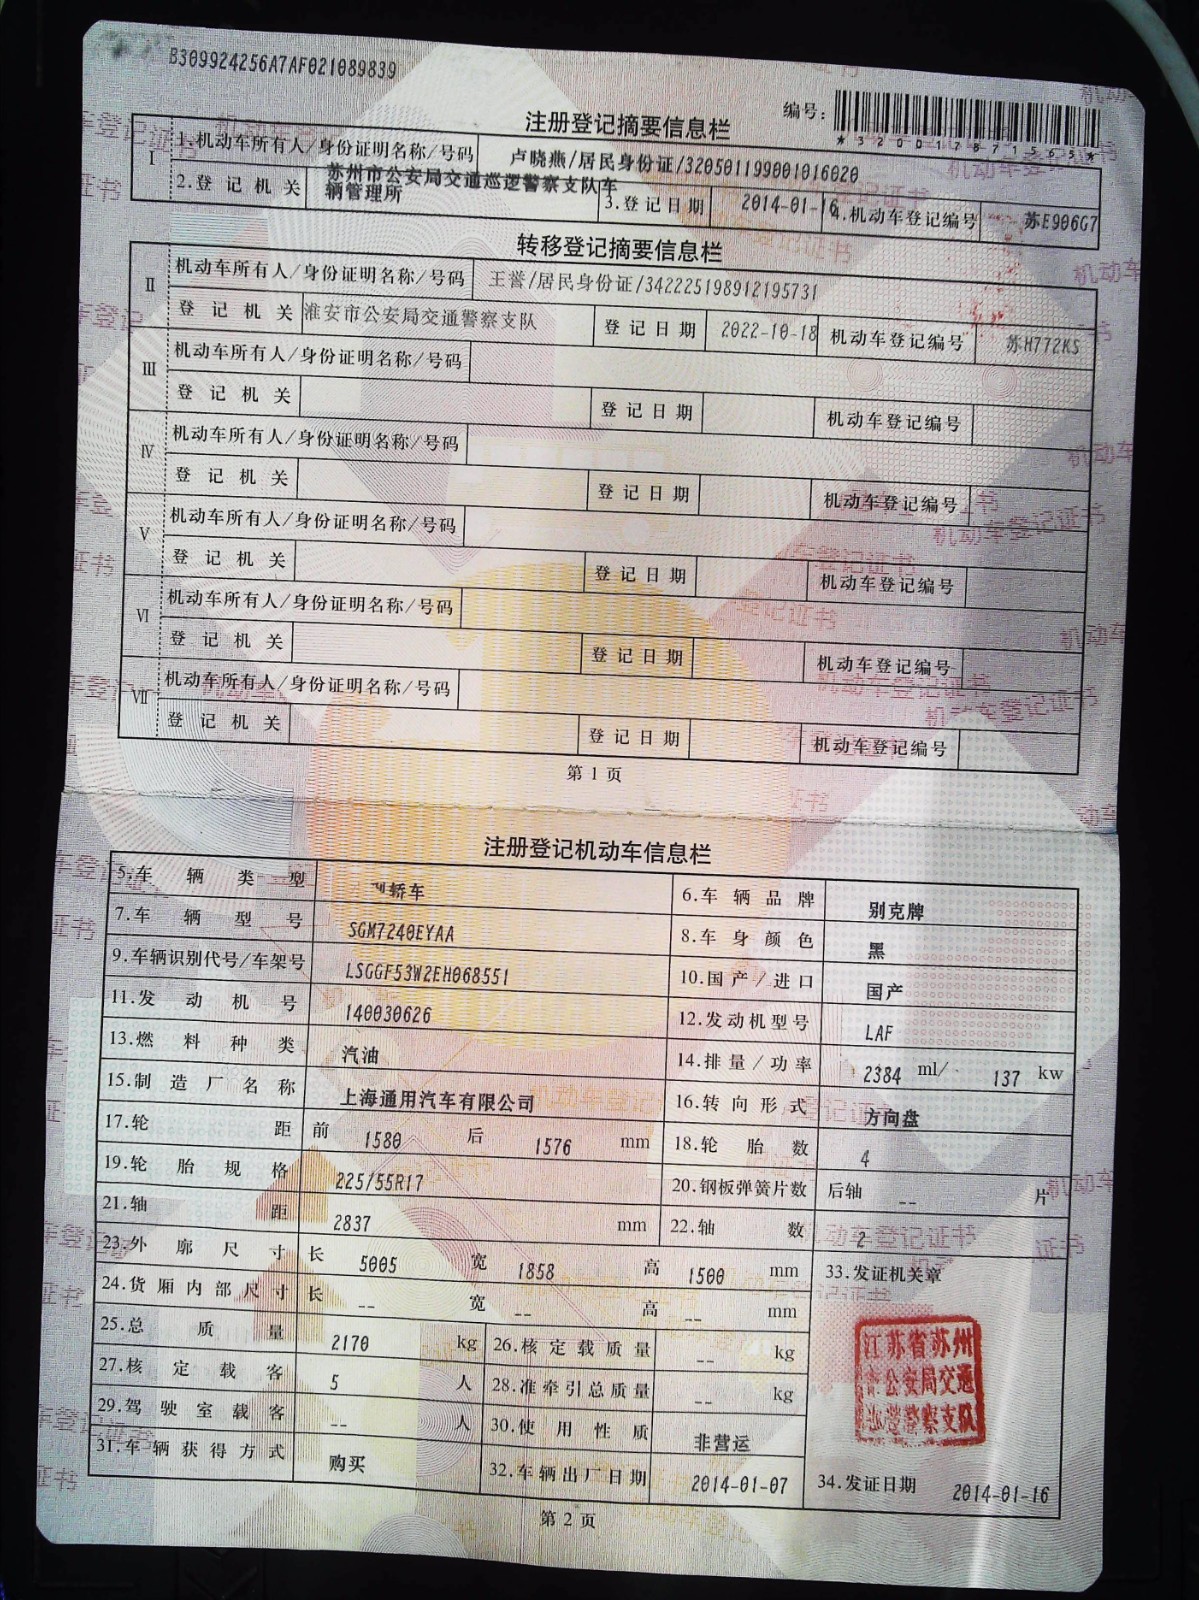 B309924256A7AF021089839
编号：
*320017871565*
注册登记摘要信息栏
I 1.机动车所有人/身份证明名称/号码 卢晓燕/居民身份证/320501199001016020
2.登记机关 苏州市公安局交通巡逻警察支队车辆管理所 3.登记日期 2014-01-16 4.机动车登记编号 苏E906G7
转移登记摘要信息栏
II 机动车所有人/身份证明名称/号码 王誉/居民身份证/342225198912195731
登记机关 淮安市公安局交通警察支队 登记日期 2022-10-18 机动车登记编号 苏H772KS
III 机动车所有人/身份证明名称/号码
登记机关 登记日期 机动车登记编号
IV 机动车所有人/身份证明名称/号码
登记机关 登记日期 机动车登记编号
V 机动车所有人/身份证明名称/号码
登记机关 登记日期 机动车登记编号
VI 机动车所有人/身份证明名称/号码
登记机关 登记日期 机动车登记编号
VII 机动车所有人/身份证明名称/号码
登记机关 登记日期 机动车登记编号
第1页
注册登记机动车信息栏
5.车辆类型 轿车 6.车辆品牌 别克牌
7.车辆型号 SGM7240EYAA 8.车身颜色 黑
9.车辆识别代号/车架号 LSGGF53W2EH068551 10.国产/进口 国产
11.发动机号 140030626 12.发动机型号 LAF
13.燃料种类 汽油 14.排量/功率 2384 ml/ 137 kw
15.制造厂名称 上海通用汽车有限公司 16.转向形式 方向盘
17.轮距 前 1580 后 1576 mm 18.轮胎数 4
19.轮胎规格 225/55R17 20.钢板弹簧片数 后轴 -- 片
21.轴距 2837 mm 22.轴数 2
23.外廓尺寸 长 5005 宽 1858 高 1500 mm 33.发证机关章
24.货厢内部尺寸 长 -- 宽 -- 高 -- mm
25.总质量 2170 kg 26.核定载质量 -- kg
27.核定载客 5 人 28.准牵引总质量 -- kg
29.驾驶室载客 -- 人 30.使用性质 非营运
31.车辆获得方式 购买 32.车辆出厂日期 2014-01-07 34.发证日期 2014-01-16
江苏省苏州
市公安局交通
巡逻警察支队
第2页